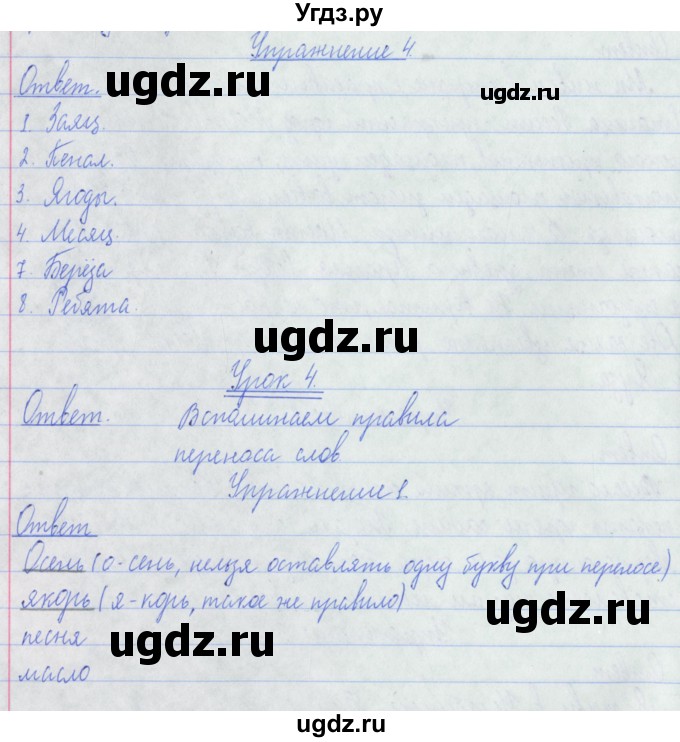 Угдз.ру
Упражнение 4.
Ответ.
ugdz.ru
ugdz.ru
1. Заяц.
2. Пенал.
3. Ягоды.
ugdz.ru
4. Месяц.
7. Берёза
8. Ребята.
ugdz.ru
Урок 4.
Ответ. Вспоминаем правила
ugdz.ru
переноса слов
Упражнение 1.
Ответ
ugdz.ru
Осень (о-сень, нельзя оставлять одну букву при переносе)
якорь (я-корь, такое же правило)
ugdz.ru
песня
ugdz.ru
масло
ugdz.ru